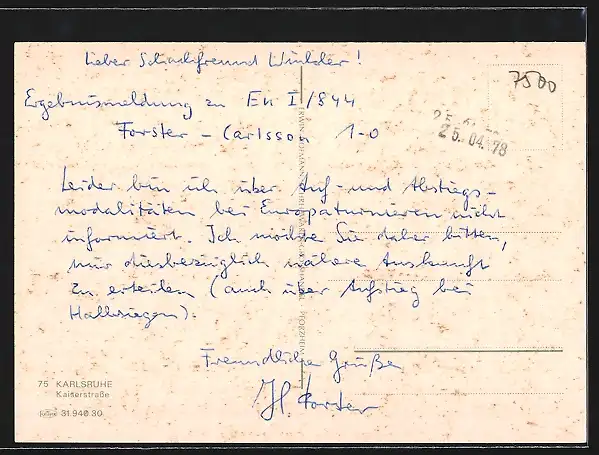 Lieber Schachfreund Winkler!
7500
Ergebnismeldung zu EK I/844
Forster – Carlsson 1-0
25. 04. 78
Leider bin ich über Auf- und Abstiegs-
modalitäten bei Europaturnieren nicht
informiert. Ich möchte Sie daher bitten,
mir diesbezüglich nähere Auskunft
zu erteilen (auch über Aufstieg bei
Halbsiegen).
Freundliche Grüße
H. Forster
75 KARLSRUHE
Kaiserstraße
31.940 30